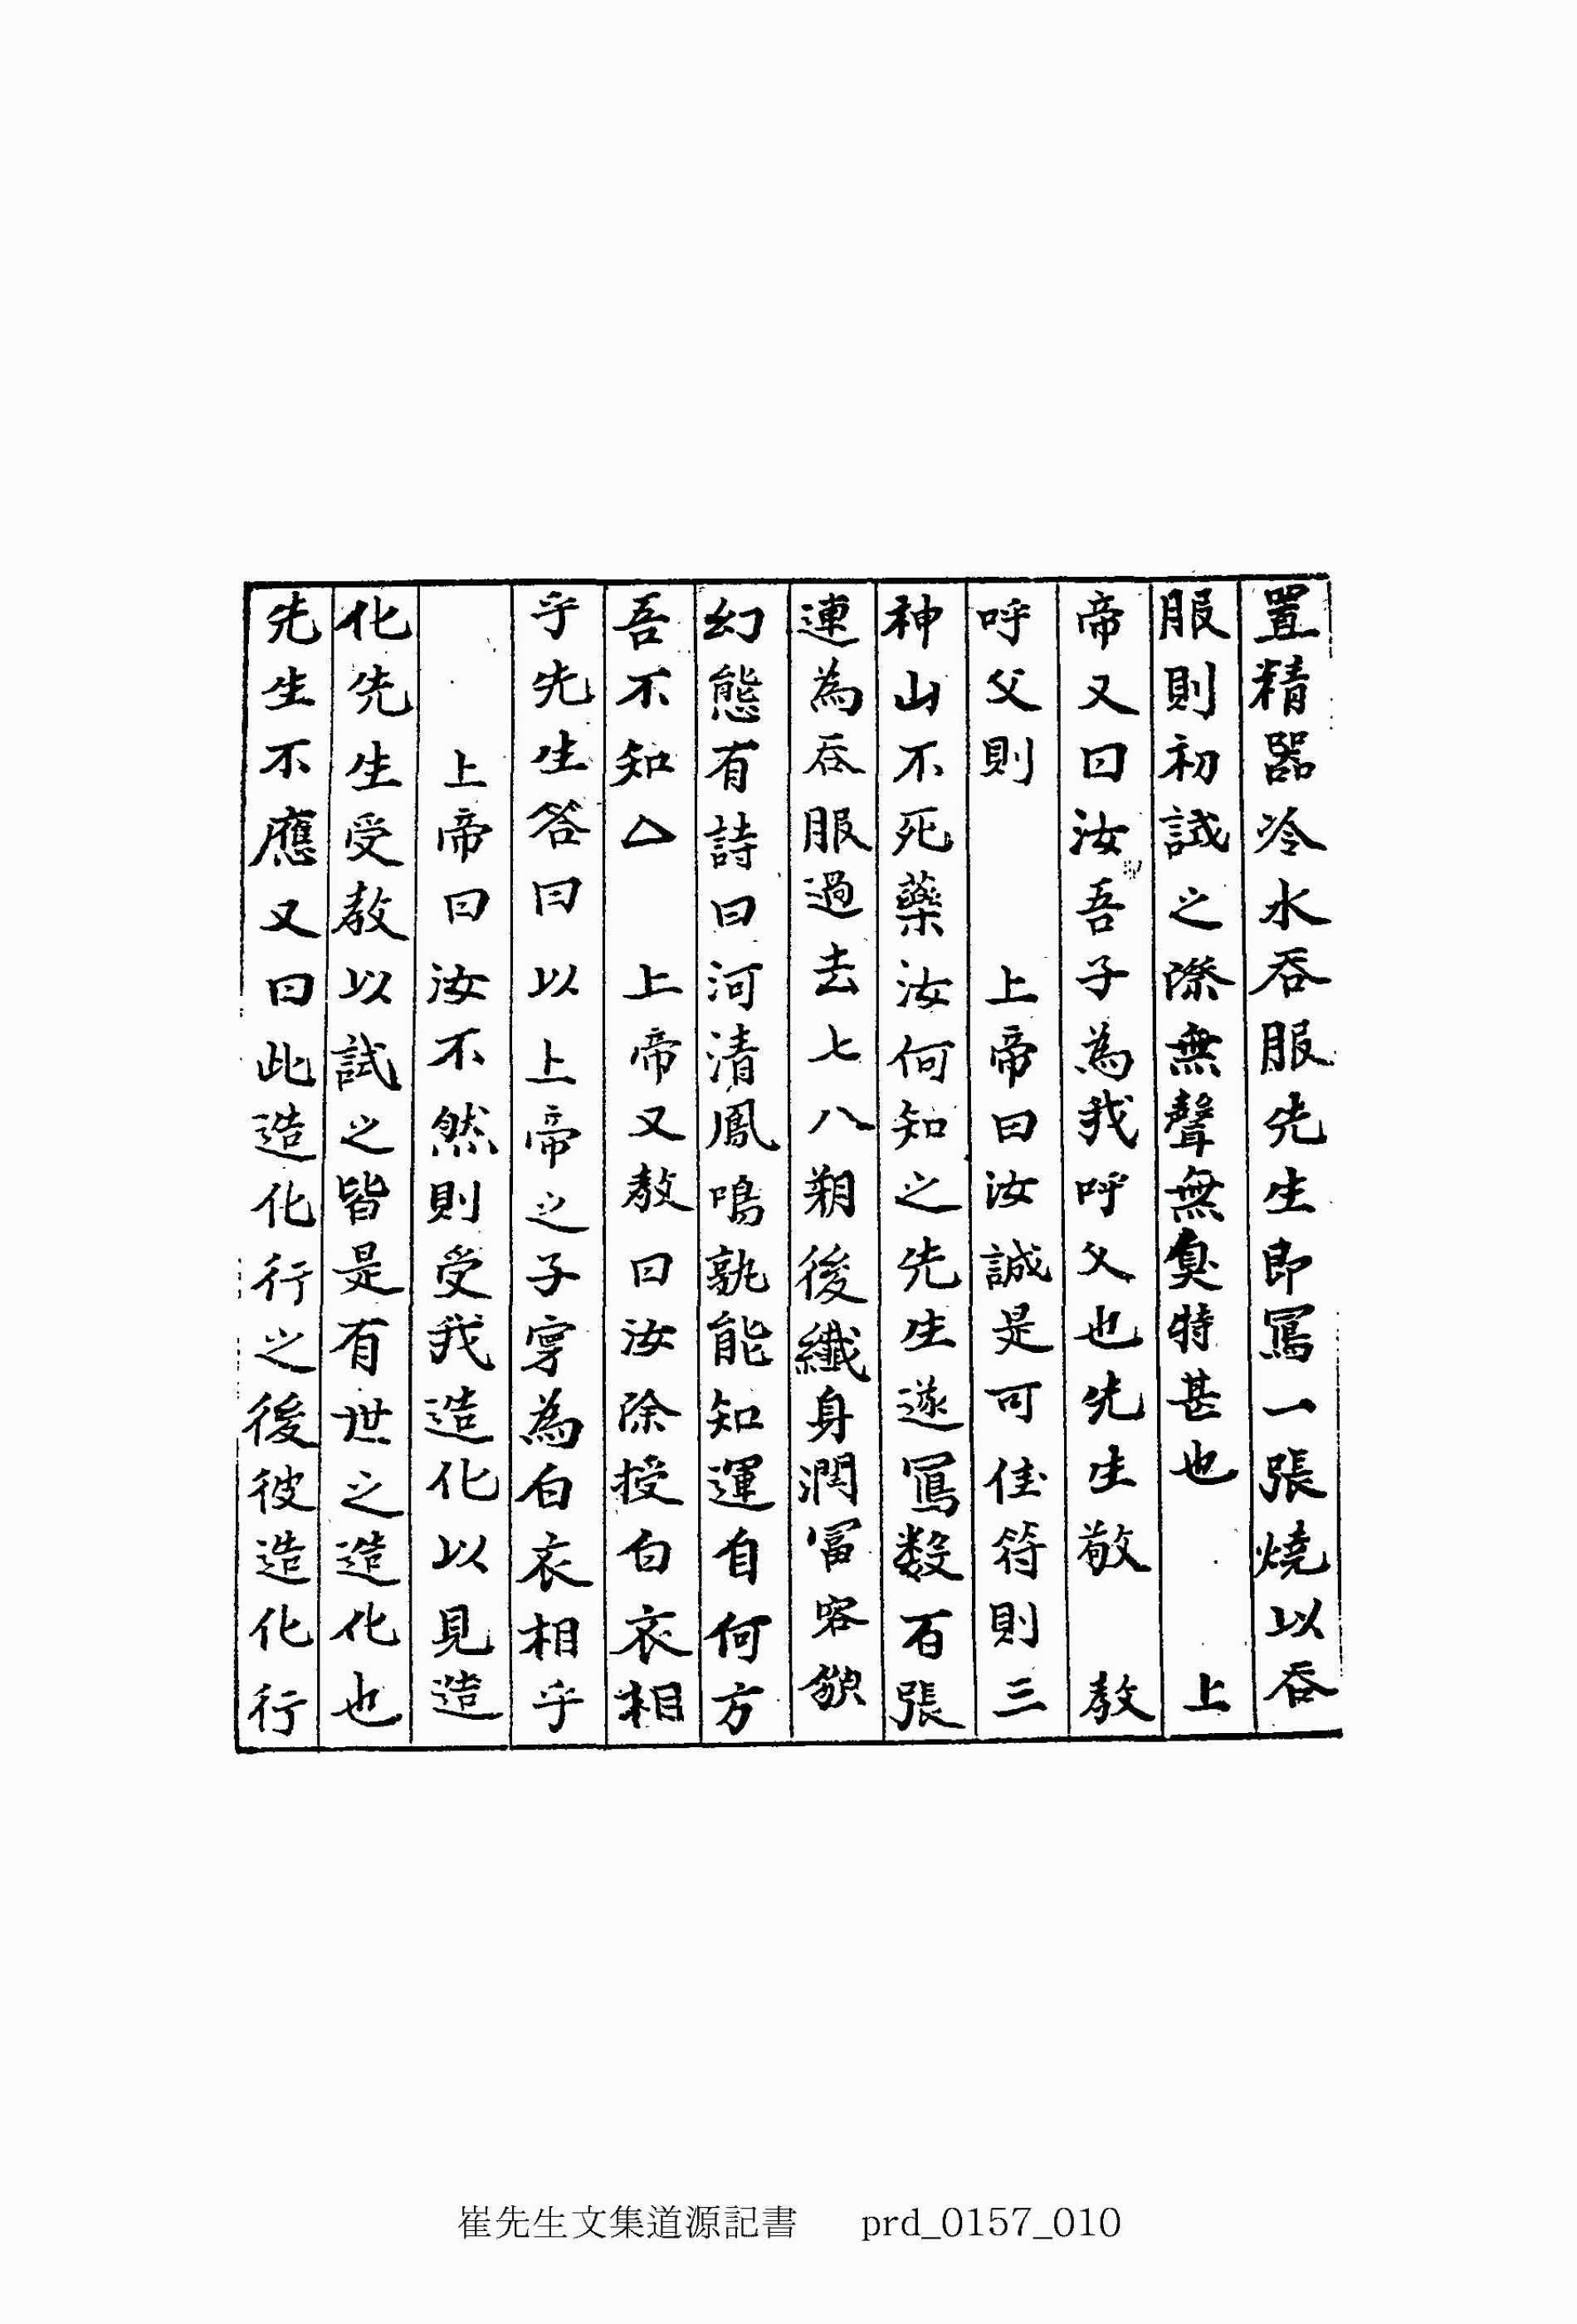 置精器冷水吞服先生即寫一張燒以吞
服則初試之際無聲無臭特甚也　上
帝又曰汝吾子為我呼父也先生敬　教
呼父則　上帝曰汝誠是可佳符則三
神山不死藥汝何知之先生遂寫数百張
連為吞服過去七八朔後纖身潤富容貌
幻態有詩曰河清鳳鳴孰能知運自何方
吾不知△　上帝又教曰汝除授白衣相
乎先生答曰以上帝之子寧為白衣相乎
上帝曰汝不然則受我造化以見造
化先生受教以試之皆是有世之造化也
先生不應又曰此造化行之後彼造化行
崔先生文集道源記書　prd_0157_010